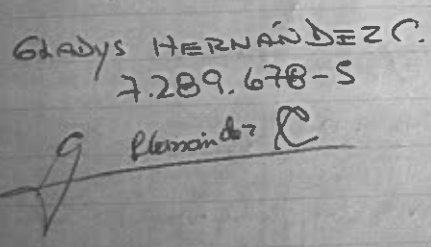 GLADYS HERNÁNDEZ C.
7.289.678-5
G Hernández C